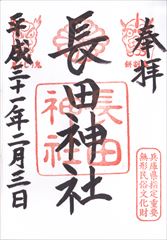 奉拝
長田神社
長田
神社
兵庫県指定重要
無形民俗文化財
平成三十一年二月三日